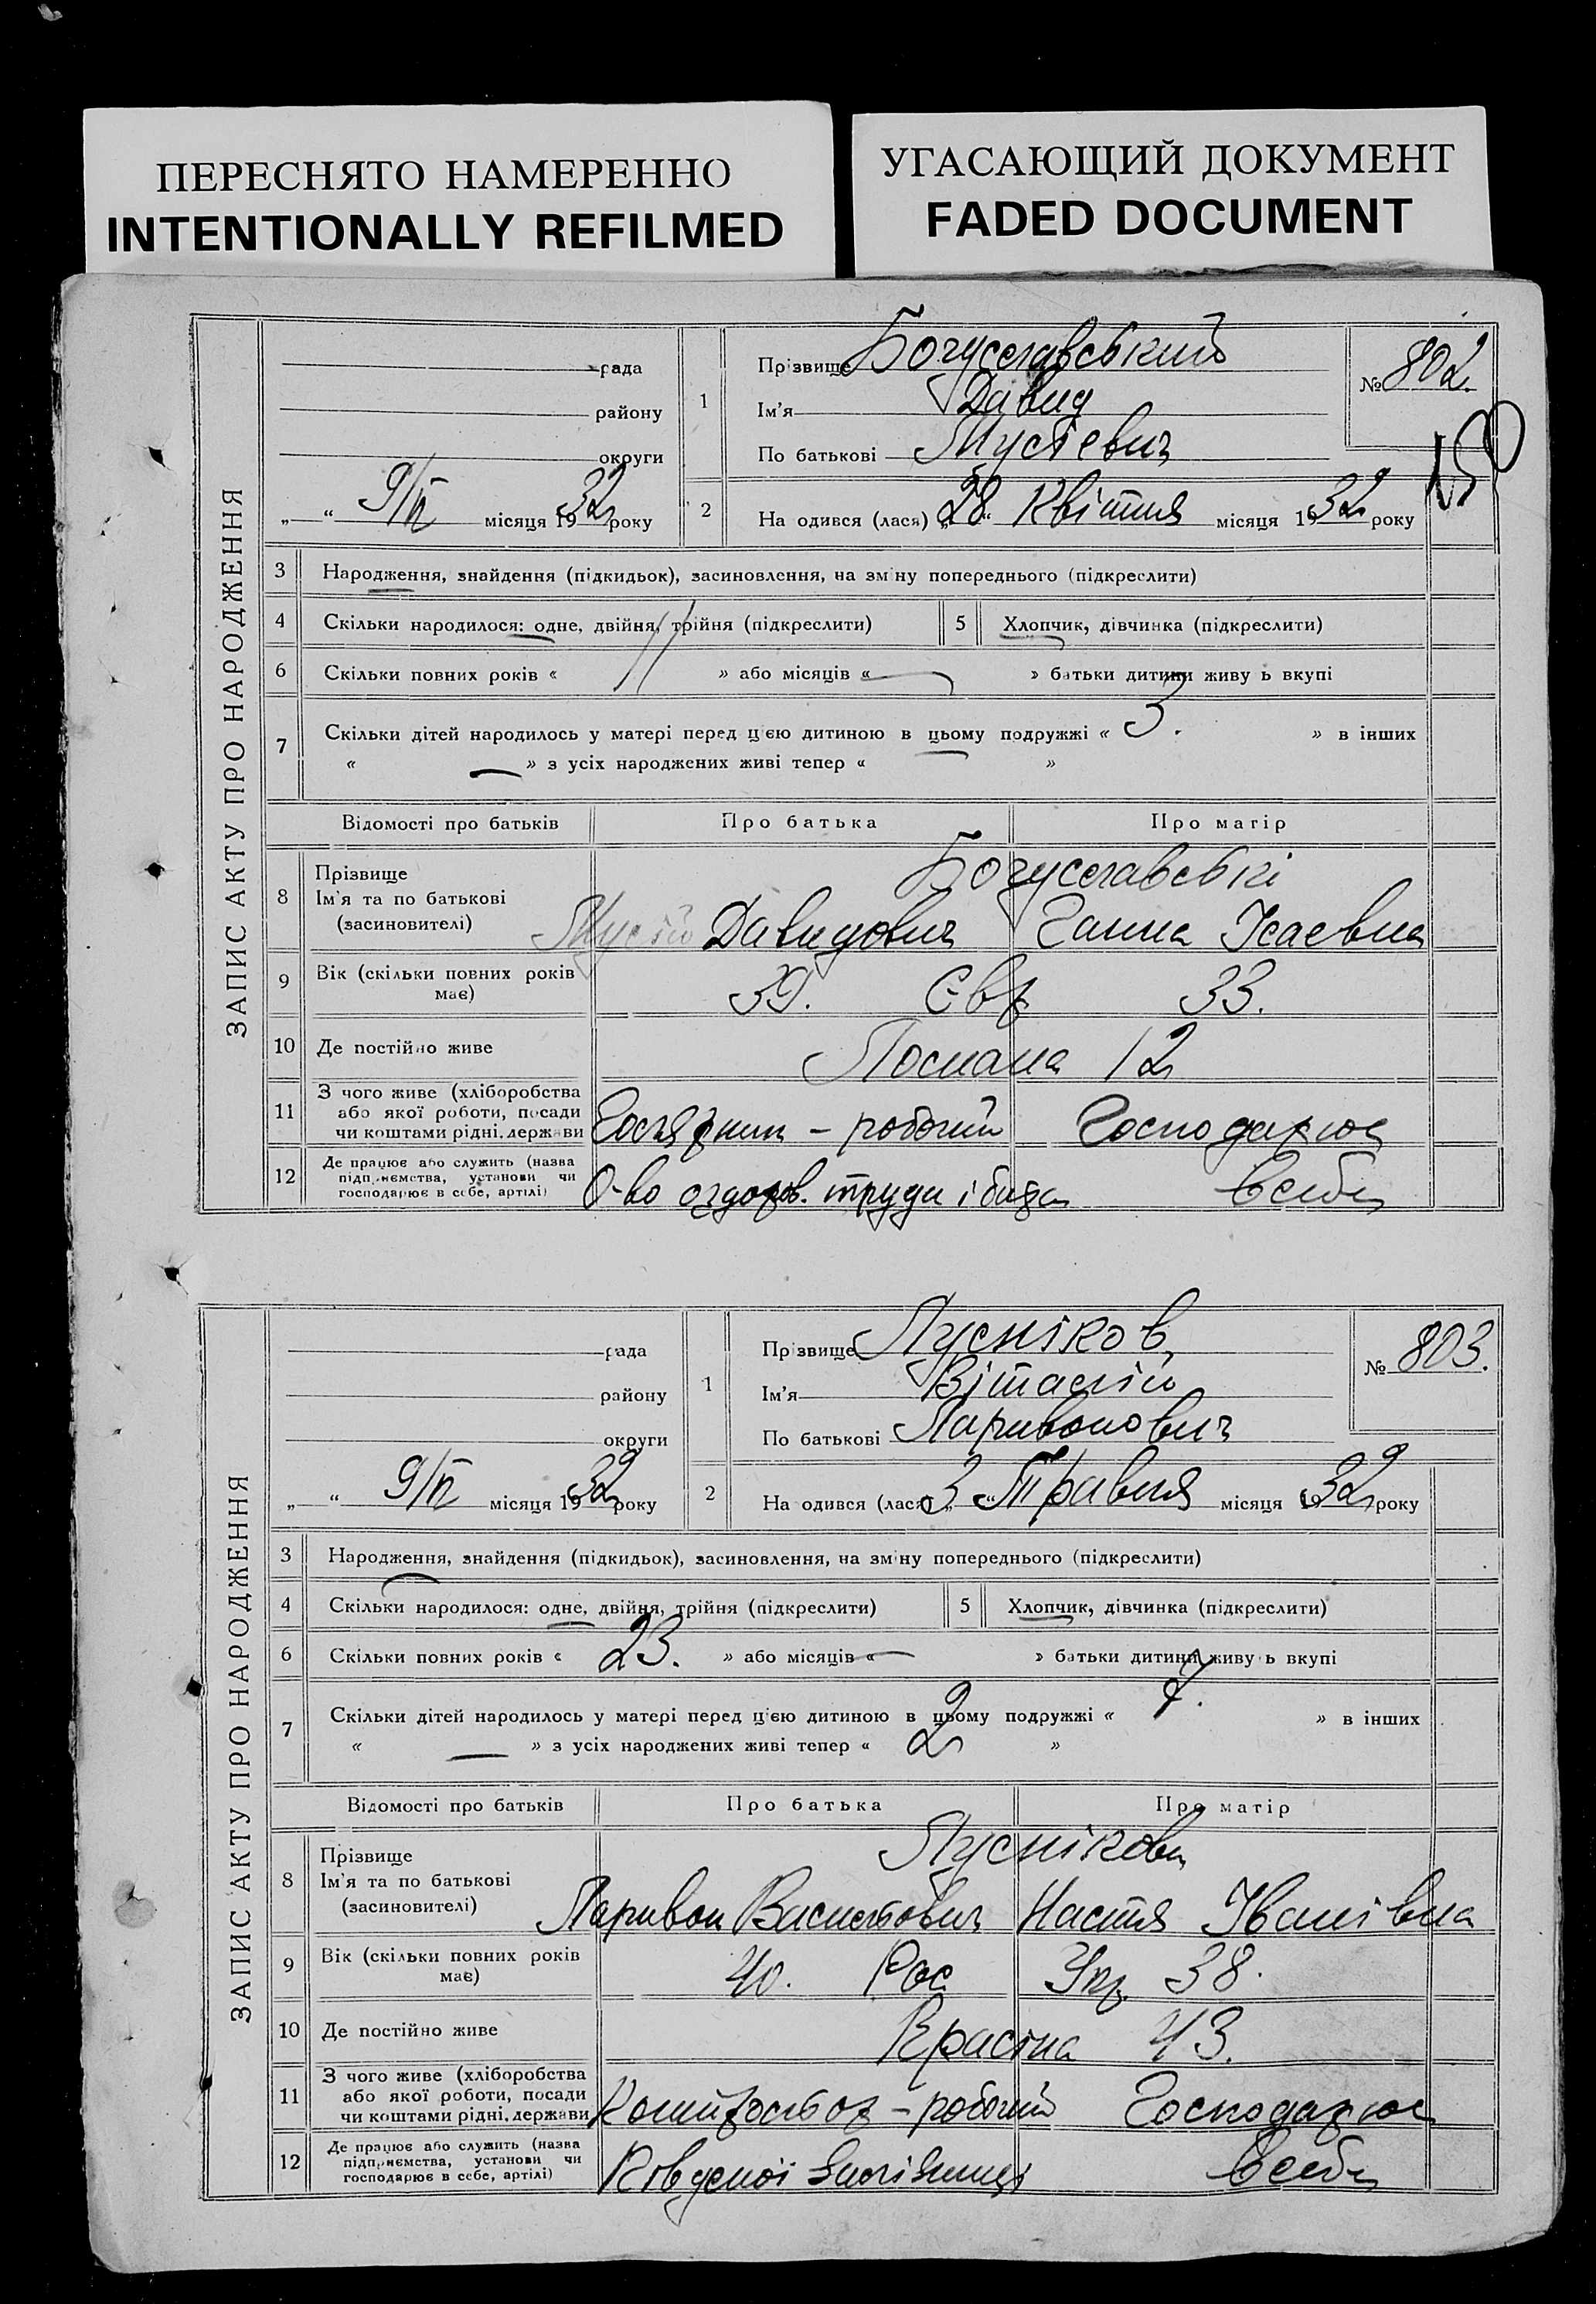 ПЕРЕСНЯТО НАМЕРЕННО
INTENTIONALLY REFILMED
УГАСАЮЩИЙ ДОКУМЕНТ
FADED DOCUMENT
ЗАПИС АКТУ ПРО НАРОДЖЕННЯ
рада
району
округи
„ “ 9/V місяця 1932 року
1 Прізвище Богуславський
Ім'я Давид
По батькові Мусієвич
№ 802.
2 На одився (лася) „28“ Квітня місяця 1932 року
3 Народження, знайдення (підкидьок), засиновлення, на зміну попереднього (підкреслити)
4 Скільки народилося: одне, двійня, трійня (підкреслити) 5 Хлопчик, дівчинка (підкреслити)
6 Скільки повних років « 11 » або місяців « — » батьки дитини живу ь вкупі
7 Скільки дітей народилось у матері перед цією дитиною в цьому подружжі « 3. » в інших
« — » з усіх народжених живі тепер « »
Відомості про батьків Про батька Про матір
8 Прізвище
Ім'я та по батькові
(засиновителі)
Богуславські
Мусій Давидович Ганна Ісаевна
9 Вік (скільки повних років має) 39. Євр 33.
10 Де постійно живе 12
11 З чого живе (хліборобства
або якої роботи, посади
чи коштами рідні, держави
робочий Господарює
12 Де працює або служить (назва
підприємства, установи чи
господарює в себе, артілі)
О-во оздоров. труда і быта в себе
ЗАПИС АКТУ ПРО НАРОДЖЕННЯ
рада
району
округи
„ “ 9/V місяця 1932 року
1 Прізвище Лусніков
Ім'я Віталій
По батькові Ларивонович
№ 803.
2 На одився (лася) „3“ Травня місяця 1932 року
3 Народження, знайдення (підкидьок), засиновлення, на зміну попереднього (підкреслити)
4 Скільки народилося: одне, двійня, трійня (підкреслити) 5 Хлопчик, дівчинка (підкреслити)
6 Скільки повних років « 23. » або місяців « — » батьки дитини живу ь вкупі
7 Скільки дітей народилось у матері перед цією дитиною в цьому подружжі « 7. » в інших
« — » з усіх народжених живі тепер « 2 »
Відомості про батьків Про батька Про матір
8 Прізвище
Ім'я та по батькові
(засиновителі)
Луснікови
Ларивон Васильович Настя Іванівна
9 Вік (скільки повних років має) 40. Рос Укр 38.
10 Де постійно живе Красіна 43.
11 З чого живе (хліборобства
або якої роботи, посади
чи коштами рідні, держави
робочий Господарює
12 Де працює або служить (назва
підприємства, установи чи
господарює в себе, артілі)
Південної Залізниці в себе